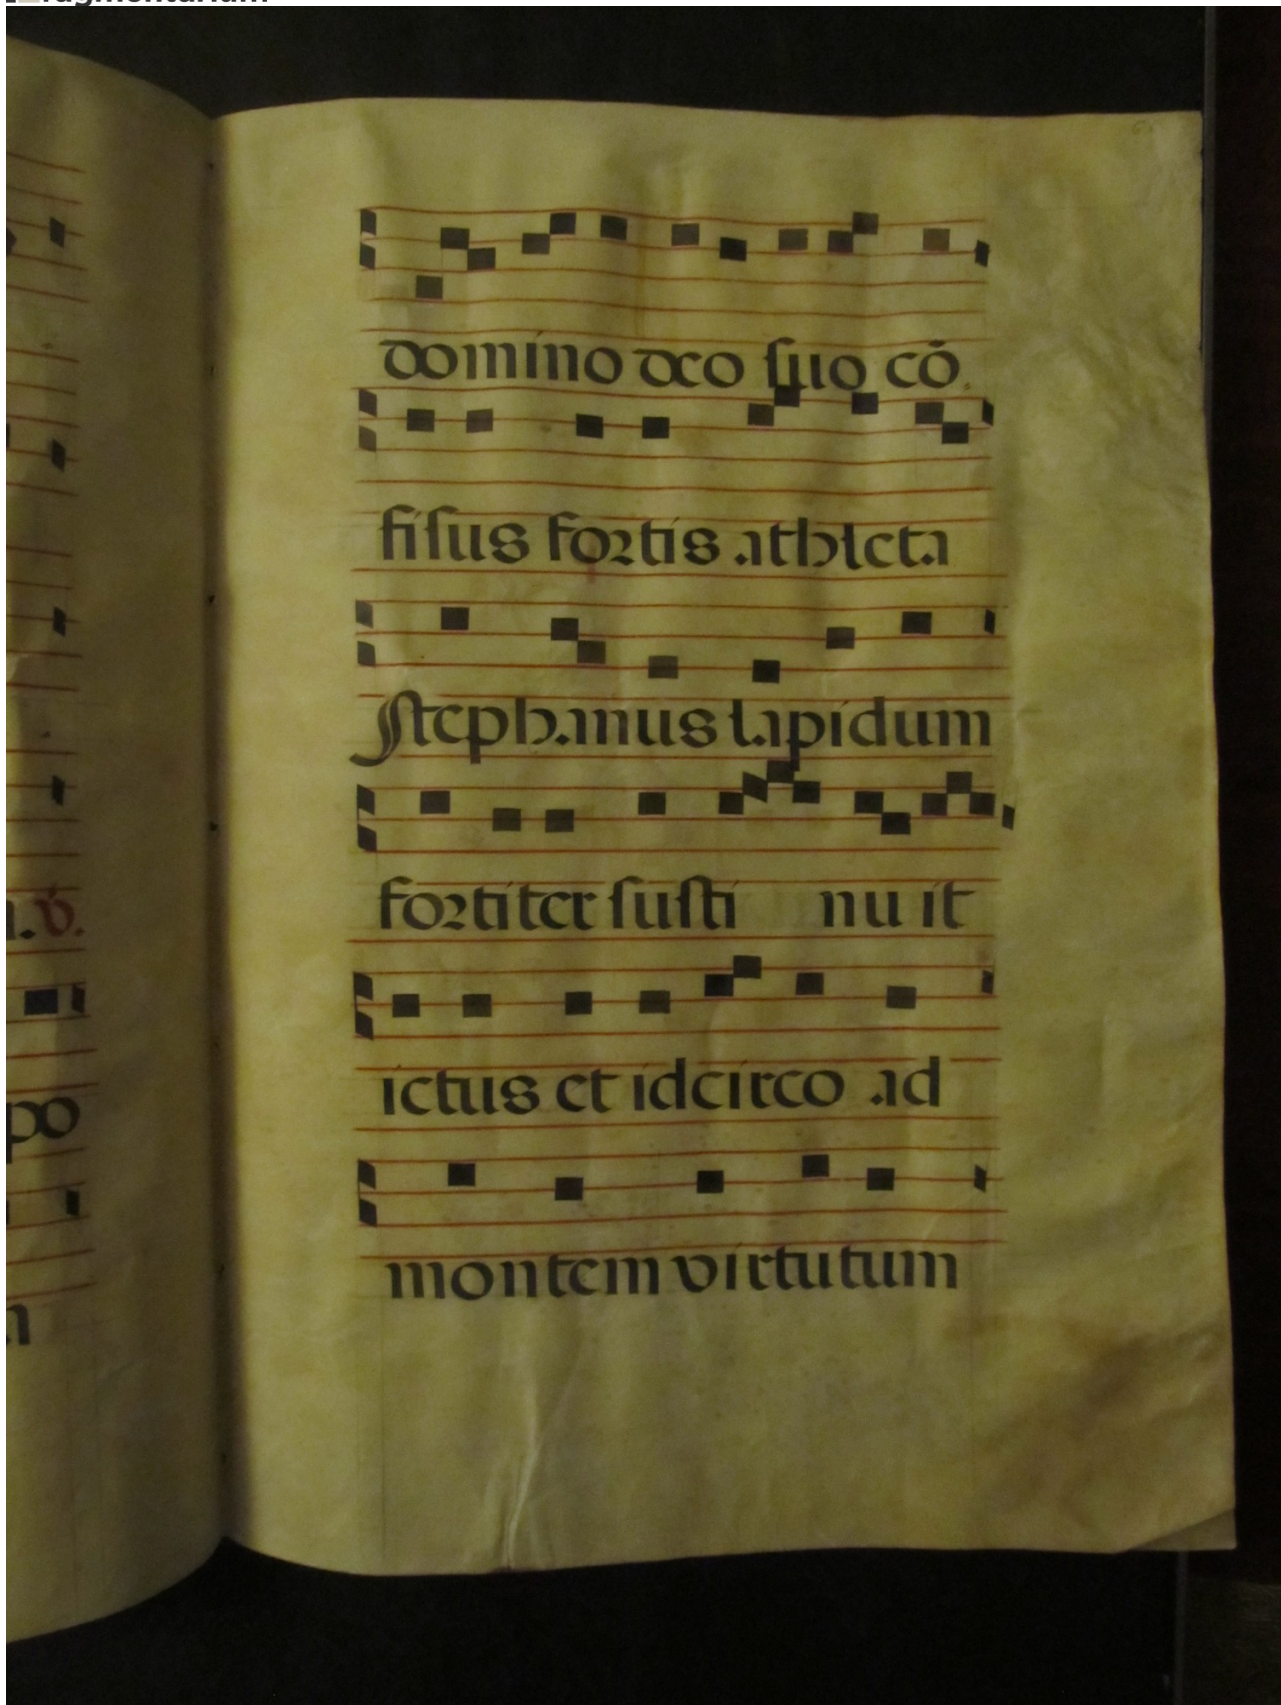 domino deo suo cō
fisus fortis athleta
Stephanus lapidum
fortiter susti nu it
ictus et idcirco ad
montem virtutum
℣.
po